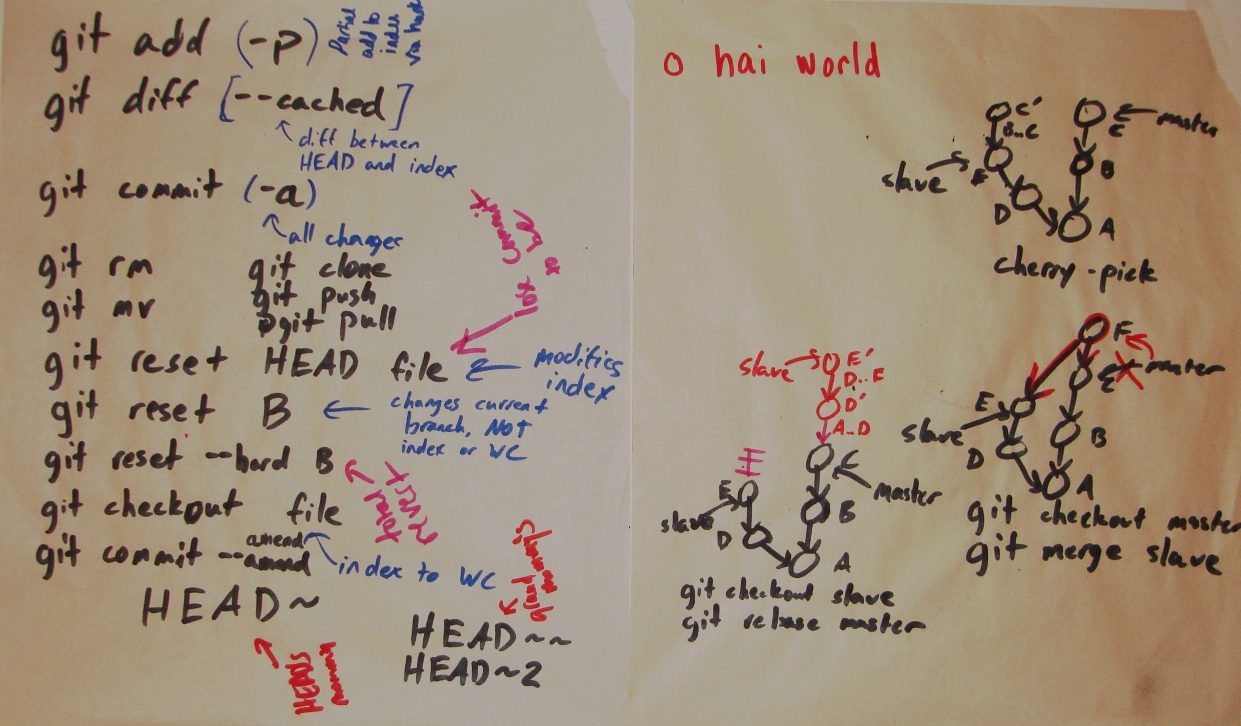 git add (-p)
Partial
add to
index
via hunk
git diff [--cached]
diff between
HEAD and index
git commit (-a)
all changes
git rm
git mv
git clone
git push
git pull
git reset HEAD file
modifies
index
git reset B
changes current
branch, NOT
index or WC
git reset --hard B
total
revert
git checkout file
index to WC
git commit --amend
amend
HEAD~
HEAD's
mommy
HEAD~~
HEAD~2
o hai world
C'
B..C
slave
E
D
A
B
C
master
cherry-pick
slave
E'
D..E
D'
A..D
C
master
B
E
slave
D
A
git checkout slave
git rebase master
F
master
C
E
slave
D
B
A
git checkout master
git merge slave